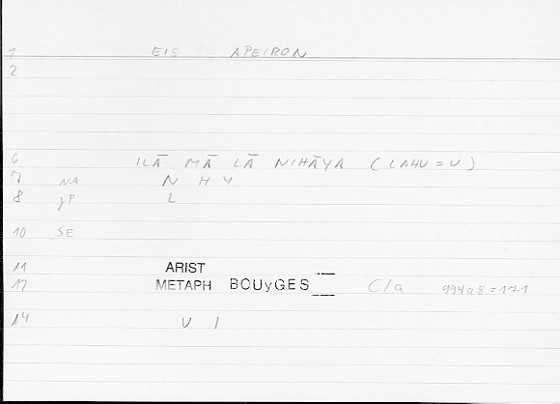 1 EIS APEIRON
2
6 ILĀ MĀ LĀ NIHĀYA (LAHU = U)
7 NA N H Y
8 gP L
10 SE
11 ARIST
12 METAPH BOUyGES C/a 994a8 = 17.1
14 U I